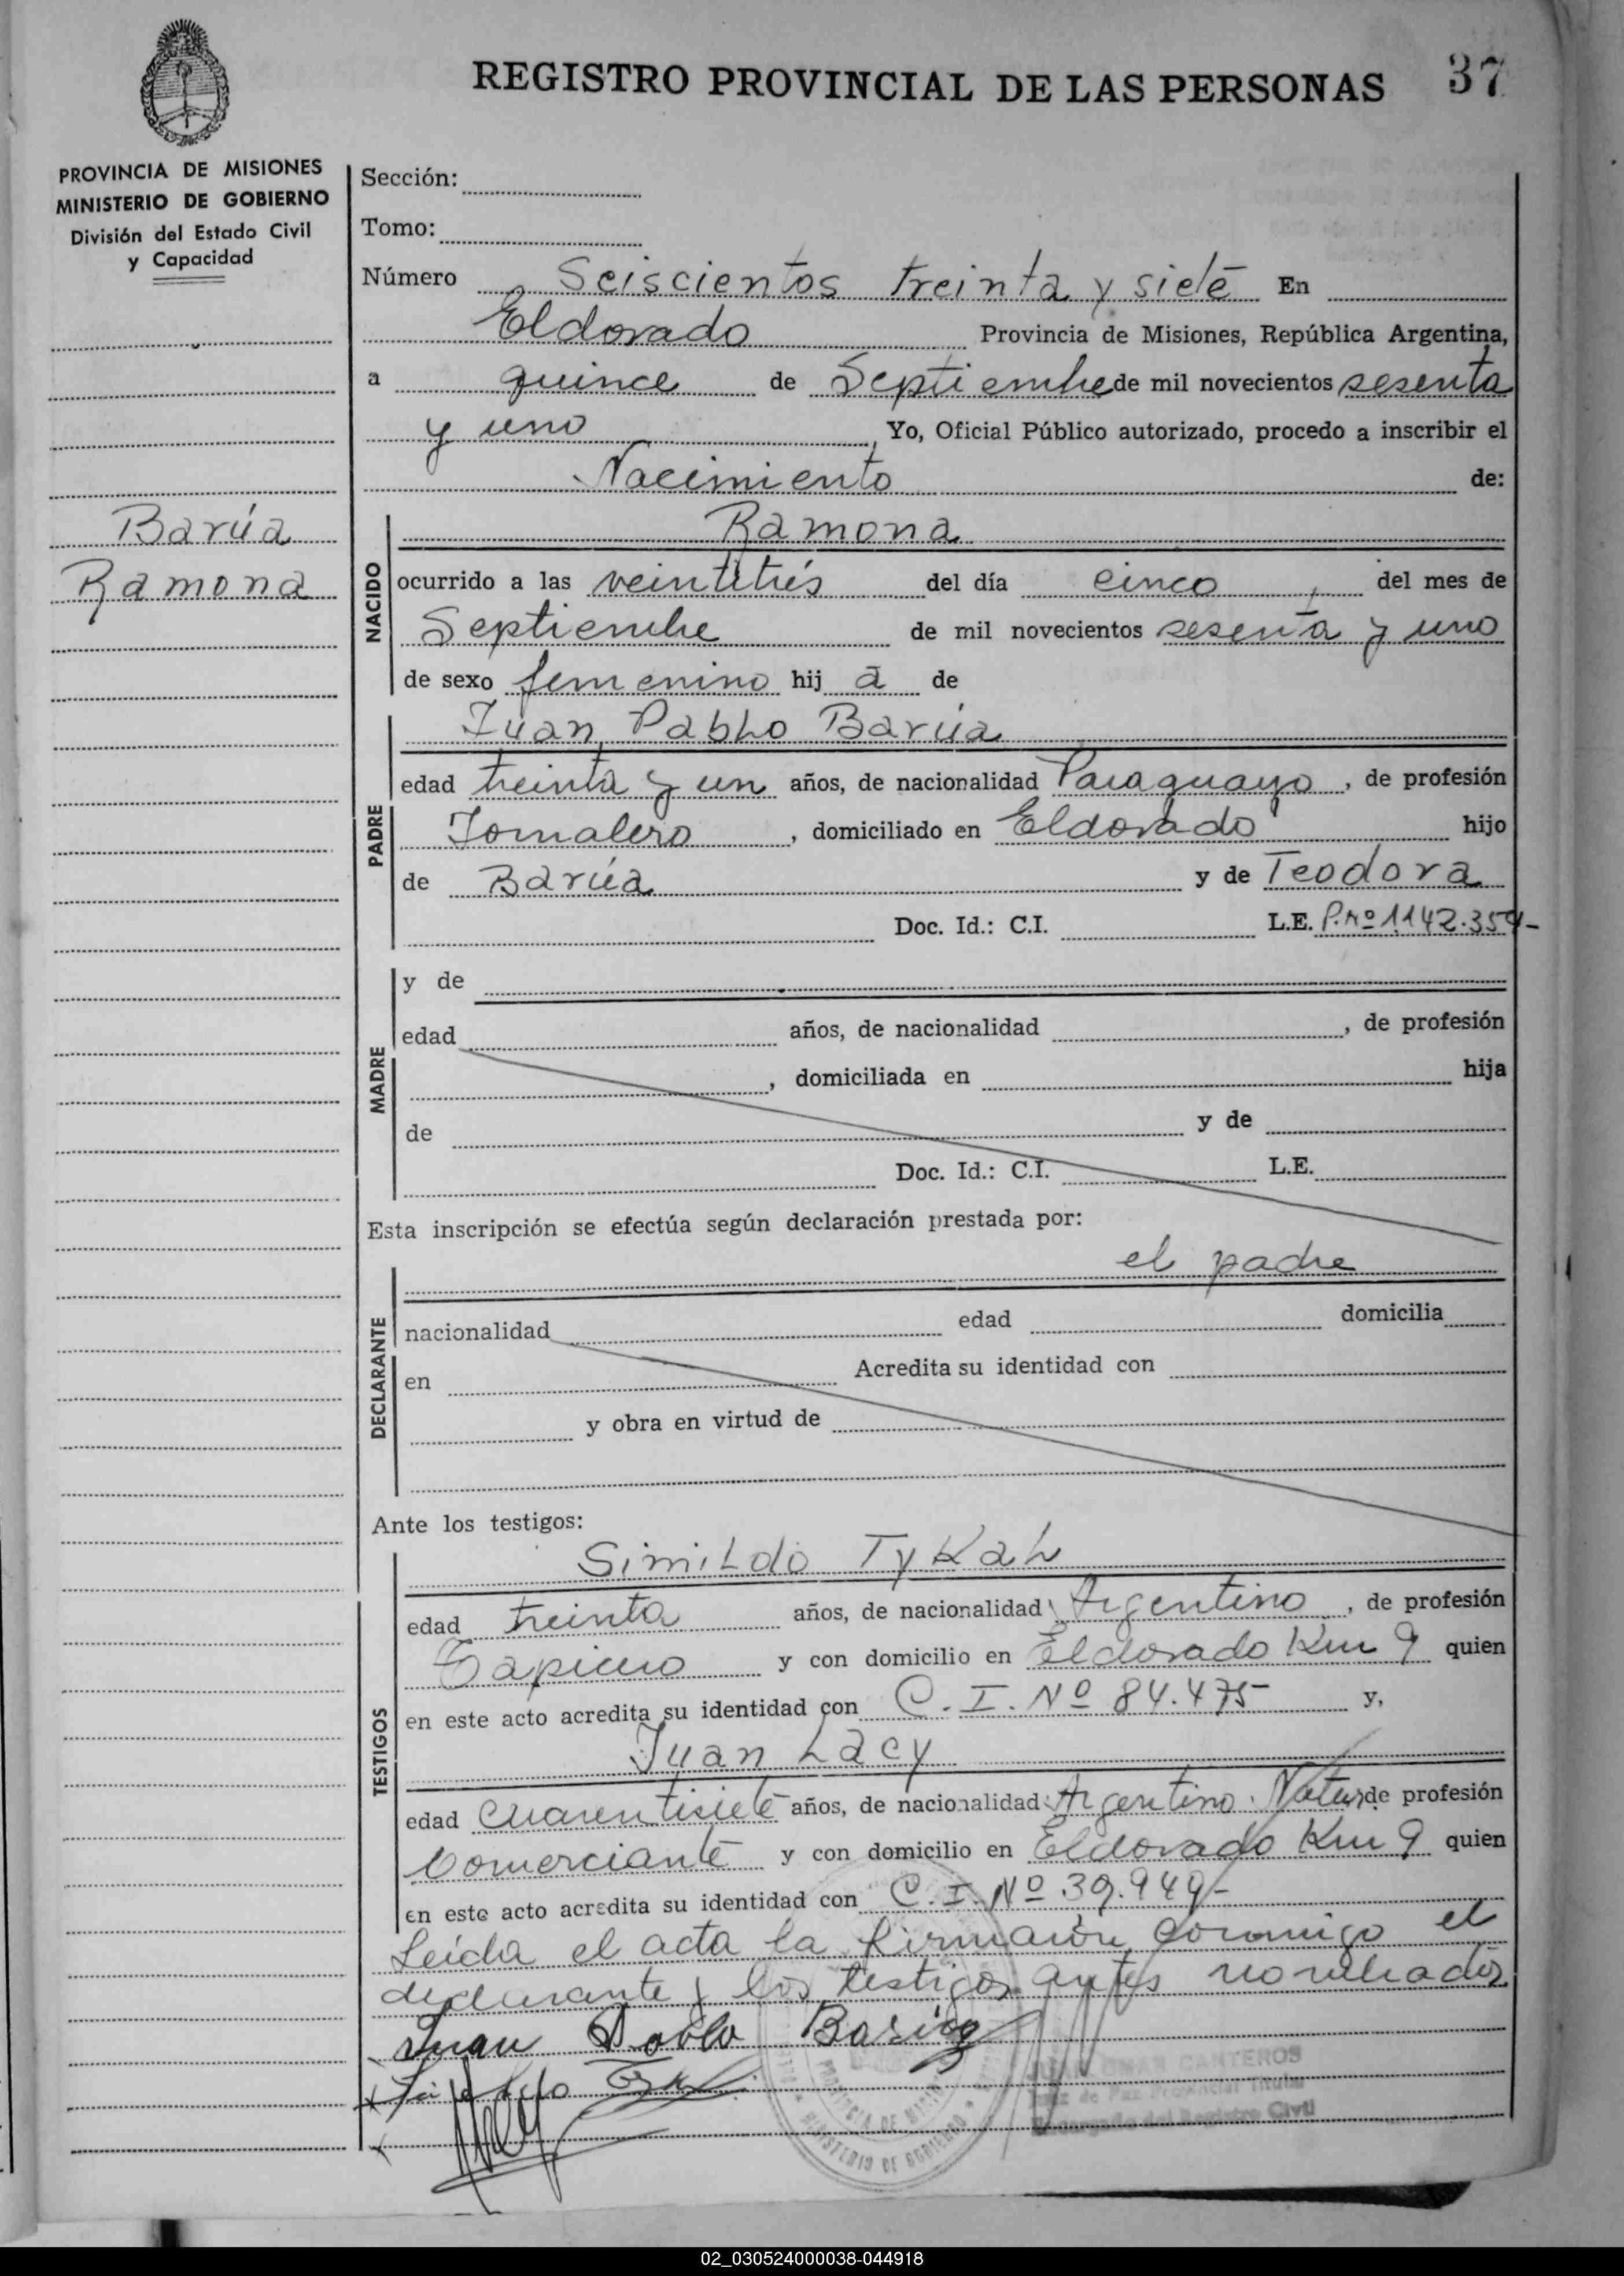 REGISTRO PROVINCIAL DE LAS PERSONAS 37
PROVINCIA DE MISIONES
MINISTERIO DE GOBIERNO
División del Estado Civil
y Capacidad
Barúa
Ramona
Sección:
Tomo:
Número Seiscientos treinta y siete En
Eldorado Provincia de Misiones, República Argentina,
a quince de Septiembre de mil novecientos sesenta
y uno, Yo, Oficial Público autorizado, procedo a inscribir el
Nacimiento de:
NACIDO
Ramona
ocurrido a las veintitrés del día cinco, del mes de
Septiembre de mil novecientos sesenta y uno
de sexo femenino hij a de
PADRE
Juan Pablo Barúa
edad treinta y un años, de nacionalidad Paraguayo, de profesión
Jornalero, domiciliado en Eldorado hijo
de Barúa y de Teodora
Doc. Id.: C.I. L.E. P.Nº 1142.354-
MADRE
y de
edad años, de nacionalidad , de profesión
, domiciliada en hija
de y de
Doc. Id.: C.I. L.E.
Esta inscripción se efectúa según declaración prestada por:
el padre
DECLARANTE
nacionalidad edad domicilia
en Acredita su identidad con
y obra en virtud de
Ante los testigos:
TESTIGOS
Simildo Tykal
edad treinta años, de nacionalidad Argentino, de profesión
Tapicero y con domicilio en Eldorado Km 9 quien
en este acto acredita su identidad con C.I. Nº 84.475- y,
Juan Lacy
edad cuarentisiete años, de nacionalidad Argentino Natur de profesión
Comerciante y con domicilio en Eldorado Km 9 quien
en este acto acredita su identidad con C.I. Nº 39.949-
Leída el acta la firmaron conmigo el
declarante y los testigos antes nombrados
Juan Pablo Barúa
JUAN OMAR CANTEROS
Juez de Paz Provincial Titular
Encargado del Registro Civil
PROVINCIA DE MISIONES
MINISTERIO DE GOBIERNO
02_030524000038-044918